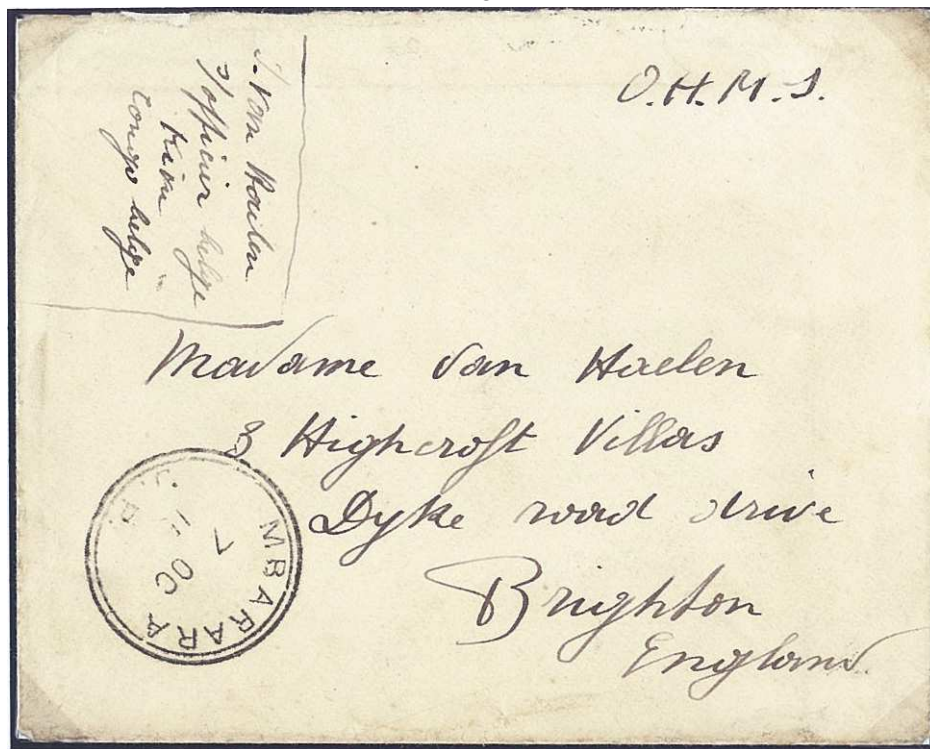 O.H.M.S.
J. Van
s/officier belge
Congo belge
Madame Van Haelen
8 Highcroft Villas
Dyke road drive
Brighton
England
MBARARA
OC